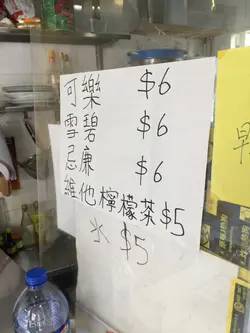 可樂 $6
雪碧 $6
忌廉 $6
維他檸檬茶 $5
水 $5